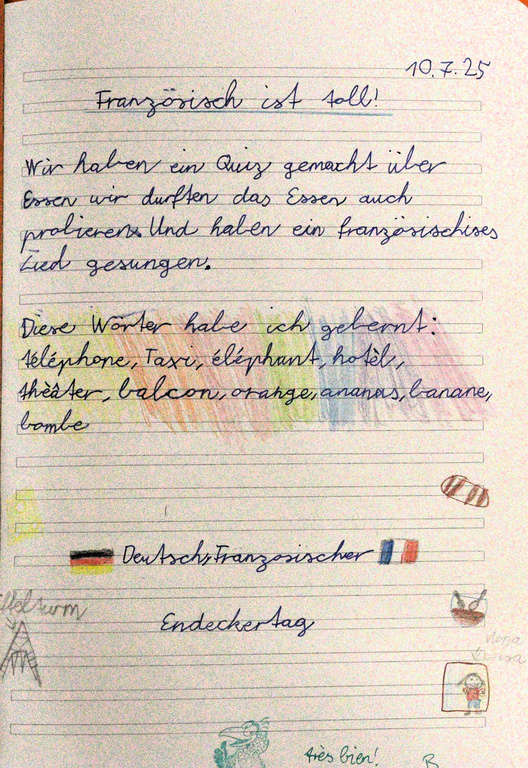 10.7.25
Französisch ist toll!
Wir haben ein Quiz gemacht über
Essen wir durften das Essen auch
probieren. Und haben ein französischises
Lied gesungen.
Diese Wörter habe ich gelernt:
téléphone, Taxi, éléphant, hotèl,
thèâter, balcon, orange, ananas, banane,
bombe
Deutsch, Französischer
Endeckertag
ffelturm
très bien! B